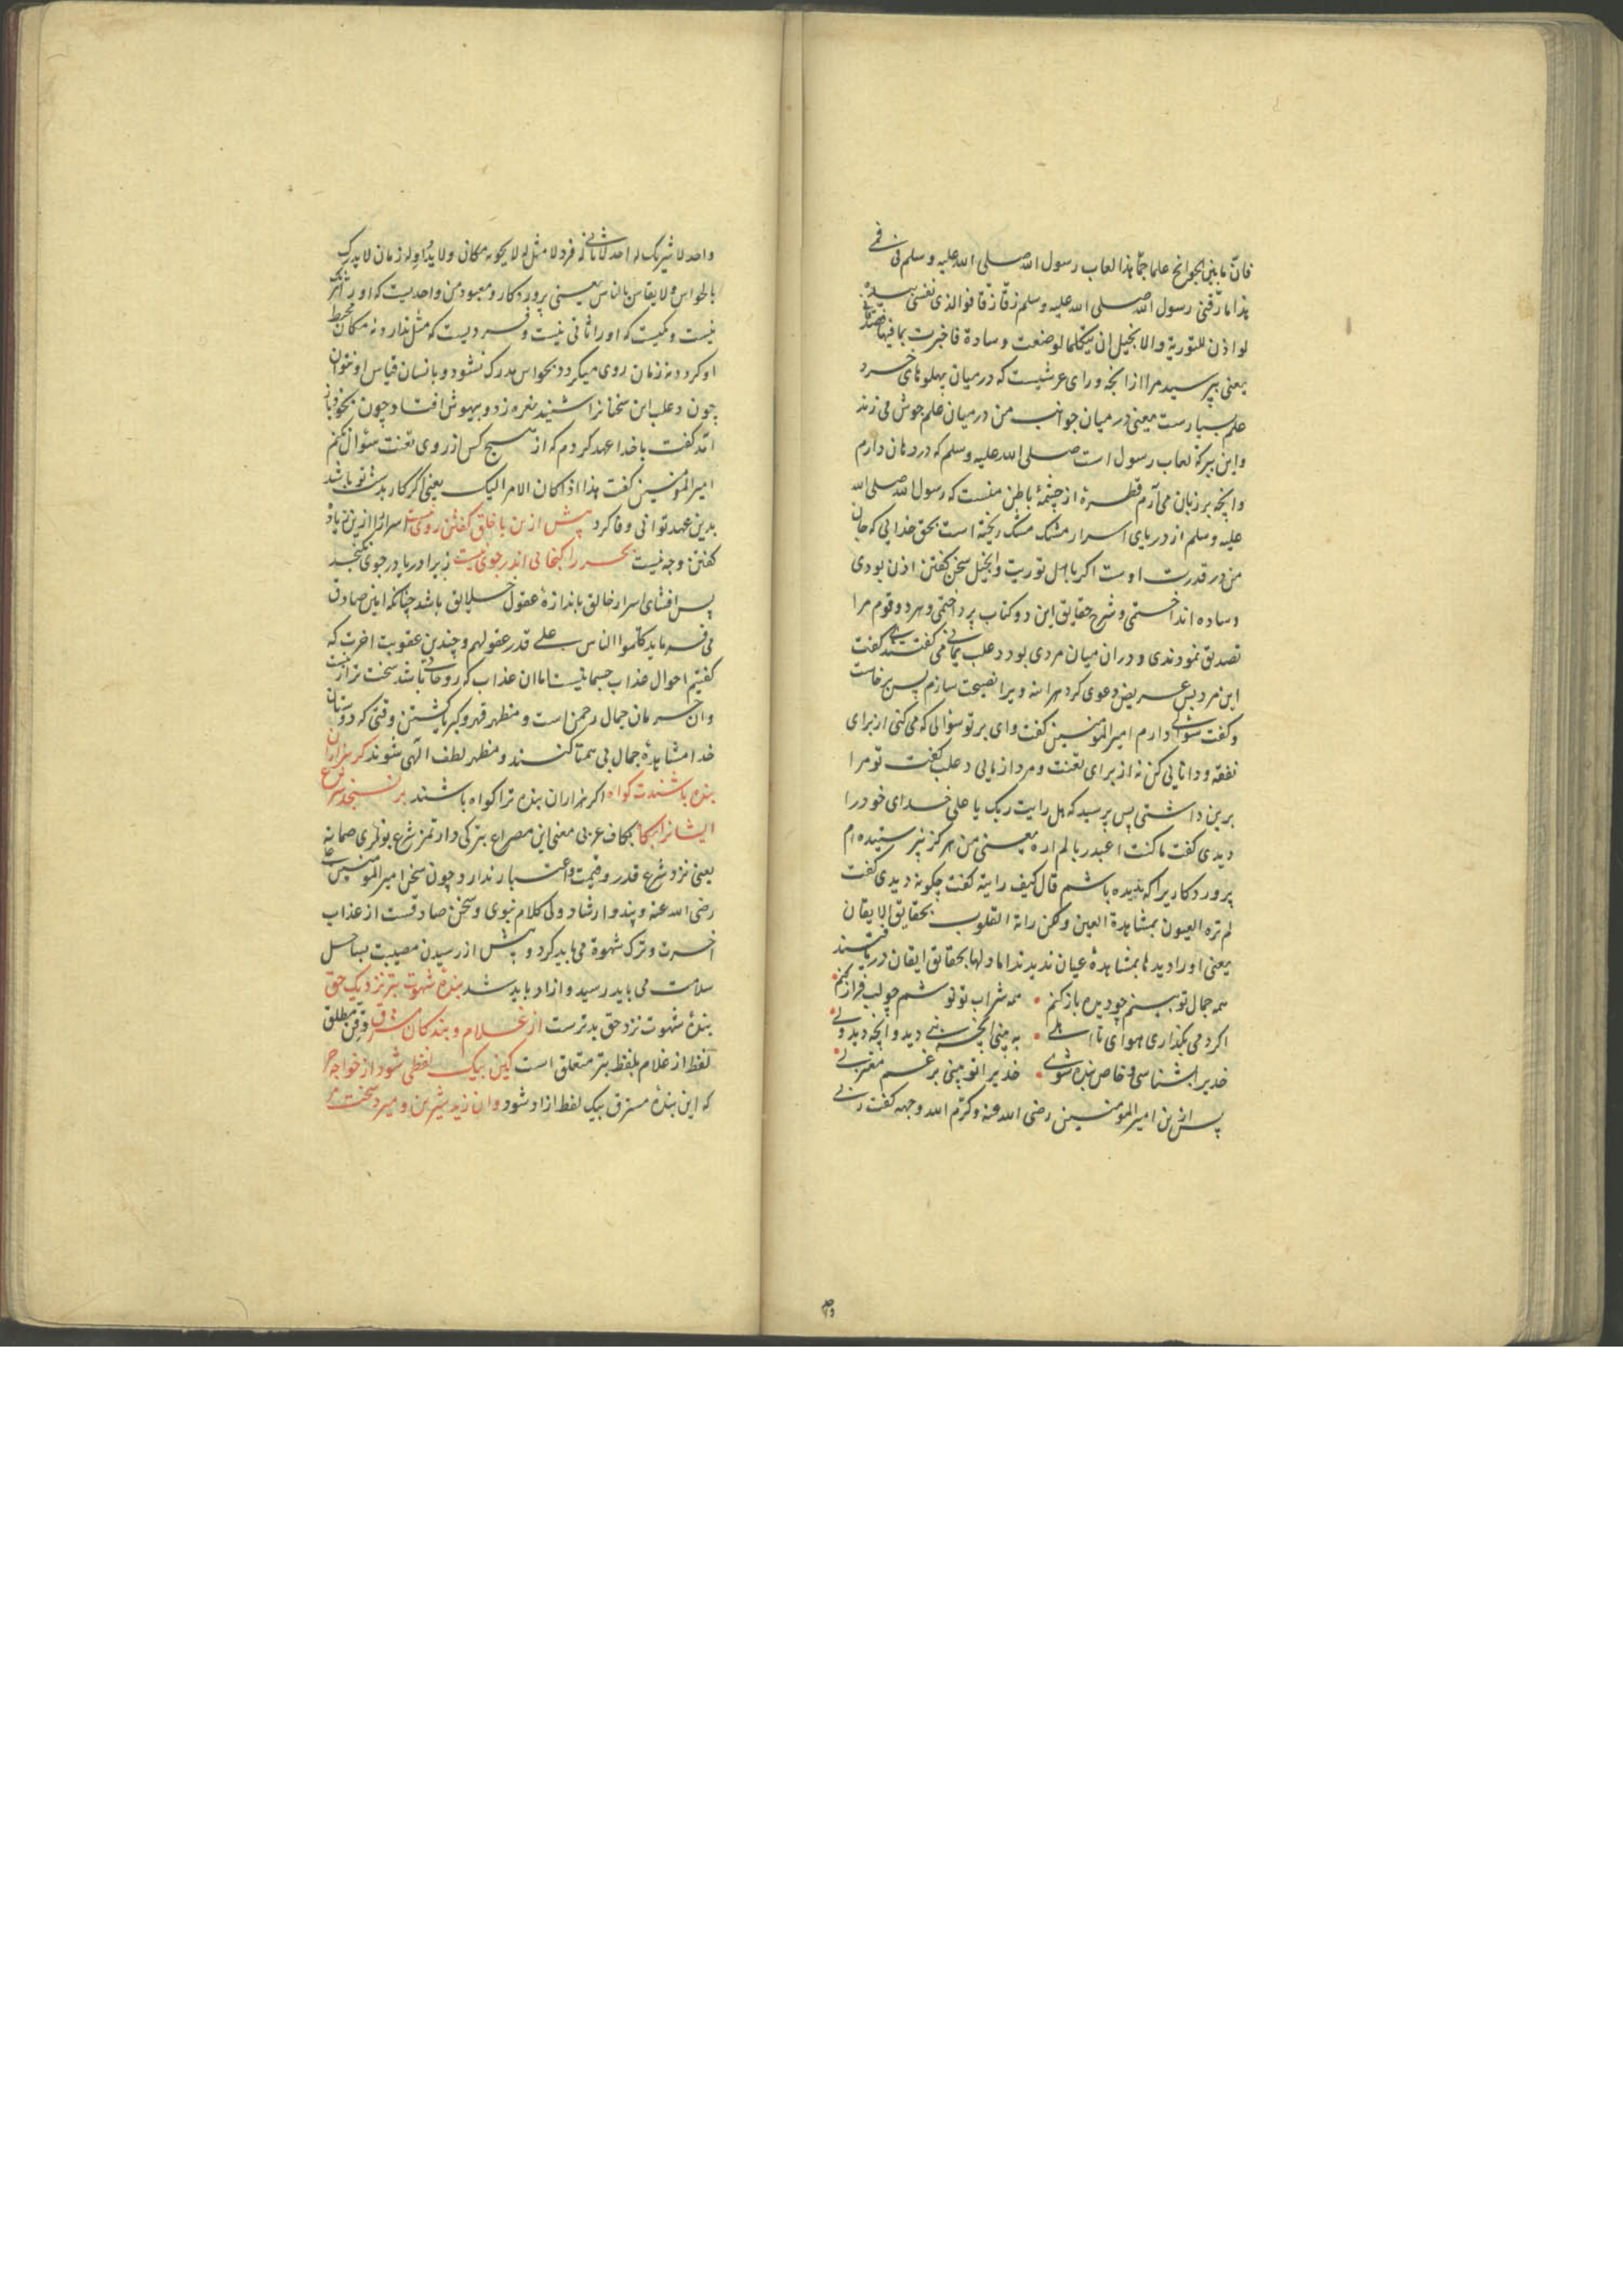 فان ما بین الجوانح علما جما هذا لعاب رسول الله صلی الله علیه وسلم فی فمی
هذا ما زقنی رسول الله صلی الله علیه وسلم زقا زقا فوالذی نفسی بیده
لو اذن للتوریة والانجیل ان یتکلما لوضعت وسادة فاخبرت بما فیهما
یعنی بپرسید مرا از انچه ورای عرشیست که در میان پهلوهای خرد
علم بسیارست یعنی در میان جوانب من در میان علم جوش می زند
واین ببرکه لعاب رسول است صلی الله علیه وسلم که در دهان دارم
وانچه بر زبان می آرم قطره از چشمهٔ باطن منست که رسول الله صلی الله
علیه وسلم از دریای اسرار مشک مشک ریخته است بحق خدایی که جان
من در قدرت اوست اکر با اهل توریت وانجیل سخن کفتن اذن بودی
وساده انداختمی وشرح حقایق این دو کتاب پرداختمی وهر دو قوم مرا
تصدیق نمودندی ودران میان مردی بود دعلب یمانی می کفتند کفت
این مرد بس عریض دعوی کرد هر اینه ویرا نصیحت سازم پس برخاست
وکفت سؤالی دارم امیر المومنین کفت وای بر تو سؤالی که می کنی از برای
تفقه ودانایی کن نه از برای تعنت ومرد ازمایی دعلب کفت تو مرا
برین داشتی پس پرسید که هل رایت ربک یا علی خدای خود را
دیدی کفت ما کنت اعبد ربا لم اره یعنی من هرکز نپرستیده ام
پروردکاریرا که ندیده باشم قال کیف رایته کفت چکونه دیدی کفت
لم تره العیون بمشاهدة العین ولکن راته القلوب بحقایق الایقان
یعنی او را دیدها بمشاهدهٔ عیان ندیدند اما دلها بحقایق ایقان دریافتند
همه جمال تو بینم چو دیده باز کنم • همه شراب تو نوشم چو لب فراز کنم
اکر دمی بکذاری هوای نا اهلی • به بینی انچه نبی دید وانچه دید ولی
خدیرا بشناسی وخاص بنده شوی • خدیرا تو بینی برغم معتزلی
پس ازین امیر المومنین رضی الله عنه وکرم الله وجهه کفت ربی
واحد
واحد لا شریک له احد لا ثانی له فرد لا مثل له لا یحویه مکان ولا یداوله زمان لا یدرک
بالحواس ولا یقاس بالناس یعنی پروردکار ومعبود من واحدیست که او را شریک
نیست ویکیست که او را ثانی نیست وفردیست که مثل ندارد نه مکان محیط
او کردد نه زمان روی میکردد بحواس مدرک نشود وبا انسان قیاس او نتوان
چون دعلب این سخنانرا شنید نعره زد وبیهوش افتاد چون بخود باز
آمد کفت با خدا عهد کردم که از هیچ کس از روی تعنت سؤال نکنم
امیر المومنین کفت هذا اذا کان الامر الیک یعنی اکر کار بدست تو باشد
بدین عهد توانی وفا کرد پیش ازین با خلق کفتن روی نیست اسرار را ازین زیاده
کفتن وجه نیست بحر را کنجانی اندر جوی نیست زیرا دریا در جوی نکنجد
پس افشای اسرار خالق باندازهٔ عقول خلایق باشد چنانکه امین صادق
می فرماید کلموا الناس علی قدر عقولهم وچندین عقوبت اخرت که
کفتیم احوال عذاب جسمانیست اما ان عذاب که روحانی باشد سخت تر از
وان حرمان جمال رحمن است ومظهر قهر وکبریا کشتن وقتی که دوستان
خدا مشاهدهٔ جمال بی همتا کنند ومظهر لطف الهی شوند کر هزاران
بنده باشندت کواه اکر هزاران بنده ترا کواه باشند بر نسنجد شرع
ایشانرا بکاه بکاف عربی معنی این مصراع
یعنی نزد شرع قدر وقیمت واعتبار ندارد چون سخن امیر المومنین علی
رضی الله عنه وپند وارشاد ولی کلام نبوی وسخن صادقست از عذاب
اخرت وترک شهوة می باید کرد وپیش از رسیدن مصیبت بساحل
سلامت می باید رسید وازاد باید شد بندهٔ شهوت بتر نزدیک حق
بندهٔ شهوت نزد حق بدترست از غلام وبندکان مسترق
لفظ از غلام بلفظ بتر متعلق است کین بیک لفظی شود از خواجه حر
که این بندهٔ مسترق بیک لفظ ازاد شود وان زید شیرین ومیرد سخت مر